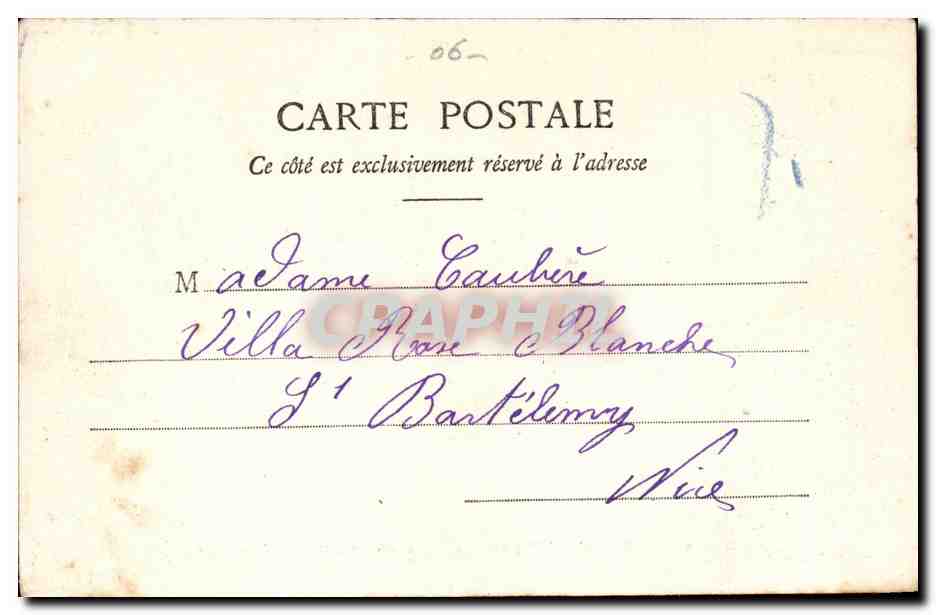 06-
CARTE POSTALE
Ce côté est exclusivement réservé à l'adresse
Madame Taubère
CPAPHIL
Villa Rose Blanche
St Bartélemy
Nice